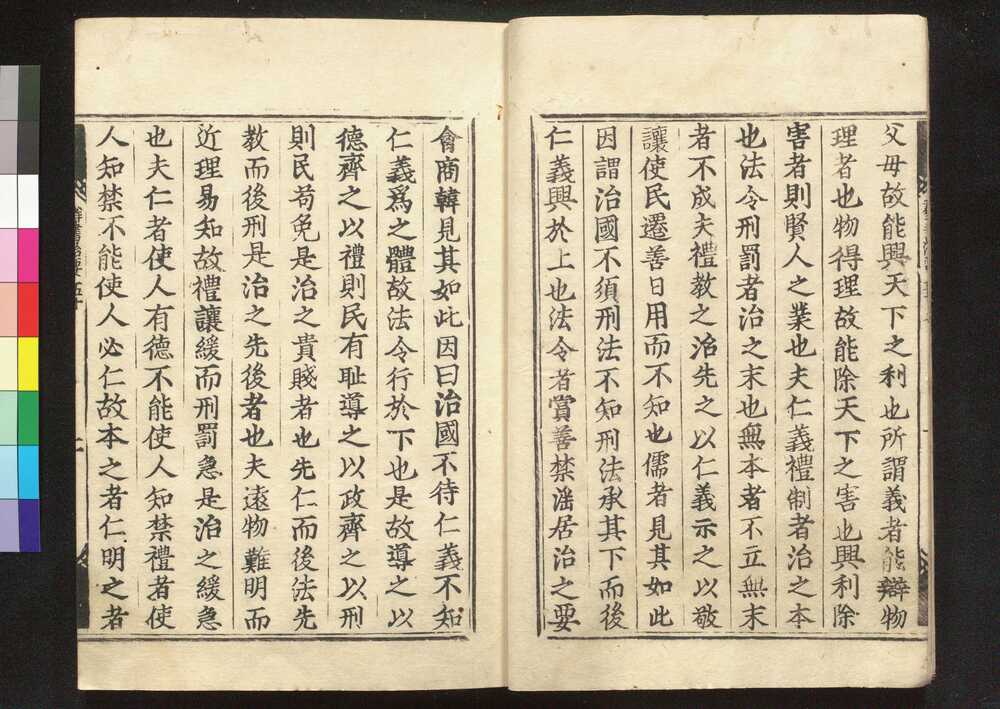 父母故能興天下之利也所謂義者能辯物
理者也物得理故能除天下之害也興利除
害者則賢人之業也夫仁義禮制者治之本
也法令刑罰者治之末也無本者不立無末
者不成夫禮教之治先之以仁義示之以敬
讓使民遷善日用而不知也儒者見其如此
因謂治國不須刑法不知刑法承其下而後
仁義興於上也法令者賞善禁淫居治之要
會商韓見其如此因曰治國不待仁義不知
仁義爲之體故法令行於下也是故導之以
德齊之以禮則民有恥導之以政齊之以刑
則民苟免是治之貴賤者也先仁而後法先
教而後刑是治之先後者也夫遠物難明而
近理易知故禮讓緩而刑罰急是治之緩急
也夫仁者使人有德不能使人知禁禮者使
人知禁不能使人必仁故本之者仁明之者